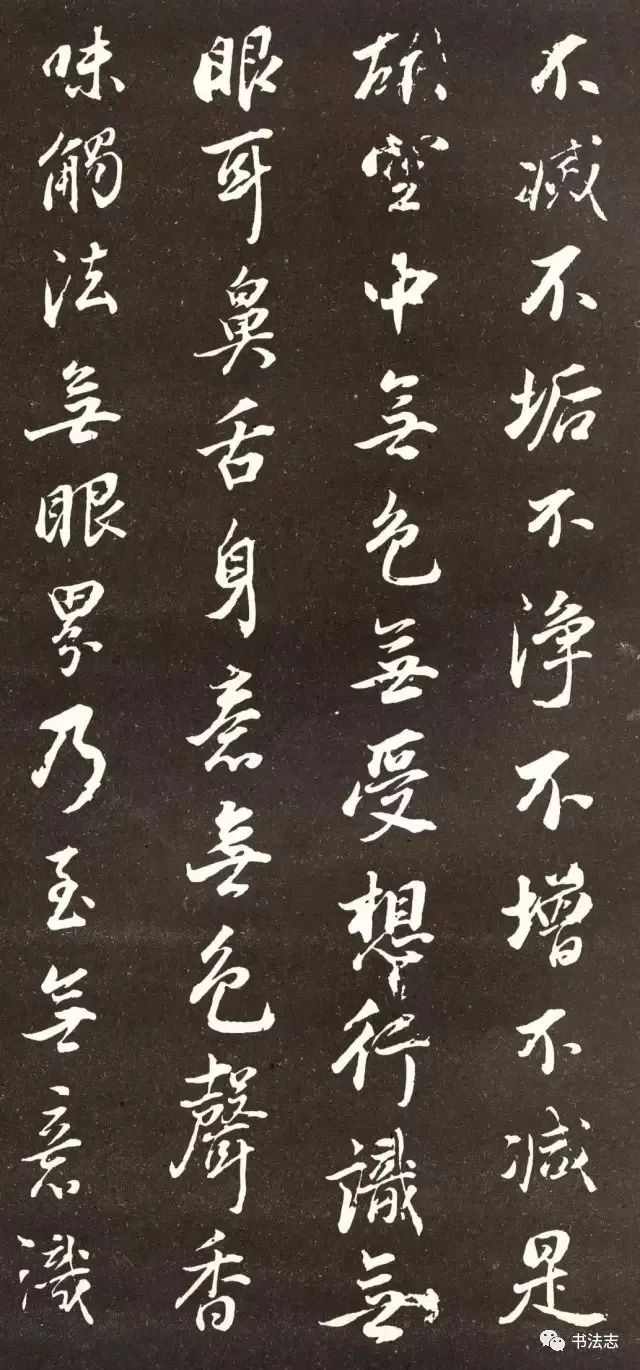 不滅不垢不淨不增不減是
故空中無色無受想行識無
眼耳鼻舌身意無色聲香
味觸法無眼界乃至無意識
书法志